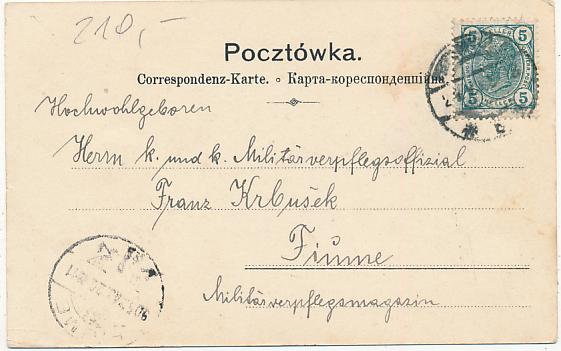 210,-
5 5
HELLER
5 5
Pocztówka.
Correspondenz-Karte. ∘ Карта-кореспонденційна
Hochwohlgeboren
Herrn k. und k. Militärverpflegsoffizial
Franz Krbušek
Fiume
Militärverpflegsmagazin